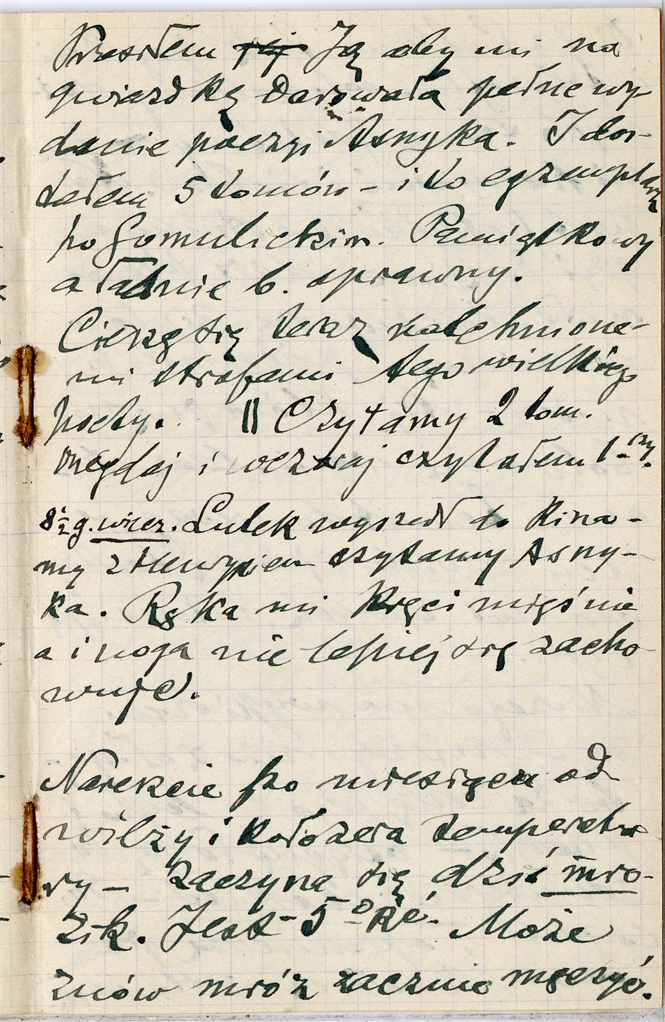 Prosiłem Ją aby mi na
gwiazdkę Darowała pełne wy-
danie poezyi Asnyka. I dos-
tałem 5 tomów - i to egzemplarz
po Gomulickim. Pamiątkowy
a ładnie b. oprawny.
Cieszę się teraz natchnione-
mi strofami tego wielkiego
poety. || Czytamy 2 tom.
onegdaj i wczoraj czytałem 1-szy.
8 1/2 g. wiecz. Lutek wyszedł do Kina -
my z czytamy Asny-
ka. Ręka mi Kręci mięśnie
a i noga nie lepiej się zacho-
wuje.
Nareszcie po miesiącu od-
wilży i temperatu
ry - zaczyna się dziś mro-
zik. Jest - 5° Ré. Może
znów mróz zacznie męczyć.